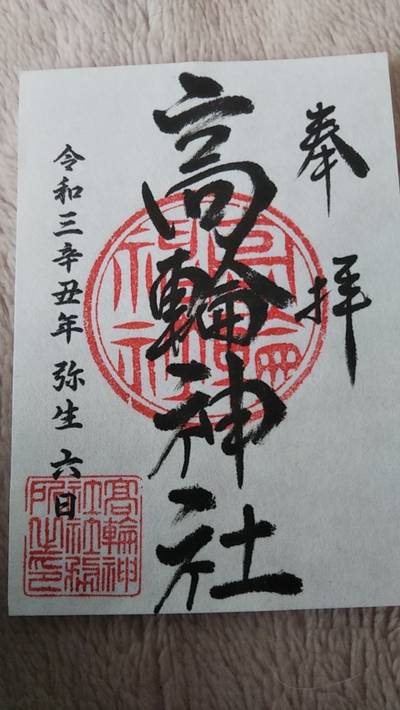 奉拝
高輪神社
令和三辛丑年 弥生 六日
高輪神社
高輪神社社務所之印